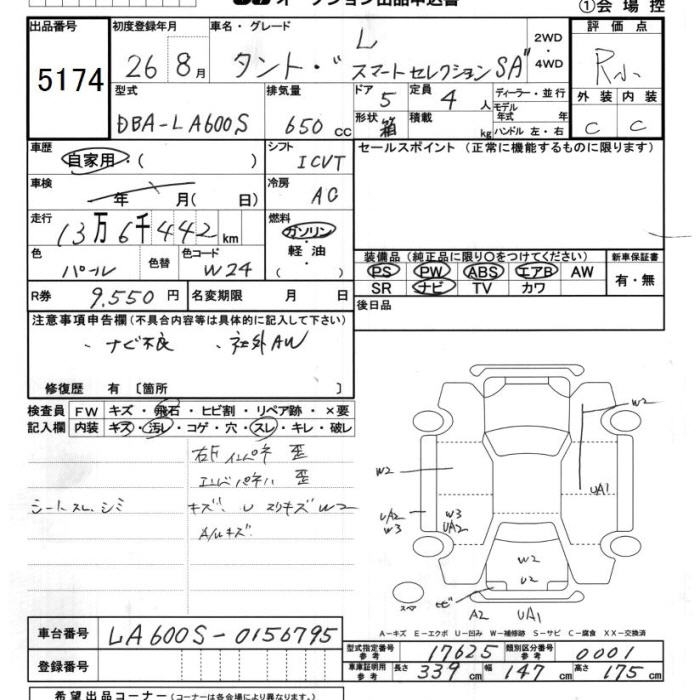 オークション出品申込書
①会場控
出品番号 初度登録年月 車名・グレード 2WD 評価点
5174 26 8月 タント・ L スマートセレクションSA ・4WD R小
型式 排気量 ドア 定員 ディーラー・並行 外装 内装
DBA-LA600S 650cc 5 4人 モデル年式 年 C C
形状 箱 積載 kg ハンドル 左・右
車歴 自家用・( ) シフト ICVT セールスポイント (正常に機能するものに限ります)
車検 年 月( 日) 冷房 AC
走行 13万6千442km 燃料 ガソリン・軽油・( )
色 パール 色替 色コード W24
装備品(純正品に限り○をつけてください) 新車保証書
PS PW ABS エアB AW 有・無
SR ナビ TV カワ
R券 9.550円 名変期限 月 日 後日品
注意事項申告欄(不具合内容等は具体的に記入して下さい)
・ナビ不良 ・社外AW
修復歴 有〔箇所 〕
検査員 FW キズ・飛石・ヒビ割・リペア跡・×要
記入欄 内装 キズ・汚レ・コゲ・穴・スレ・キレ・破レ
歪
歪
シートスレ、シミ キズ、U スリキズ W2
A/Wキズ
W2
W2
UA1
UA2
W3
W3
UA2
W2
U2
A2 UA1
A-キズ E-エクボ U-凹み W-補修跡 S-サビ C-腐食 XX-交換済
車台番号 LA600S-0156795
型式指定番号 参考 17625 類別区分番号 参考 0001
登録番号
車庫証明用 参考 長さ 339cm 幅 147cm 高さ 175cm
希望出品コーナー(コーナーは各会場により異なります。)